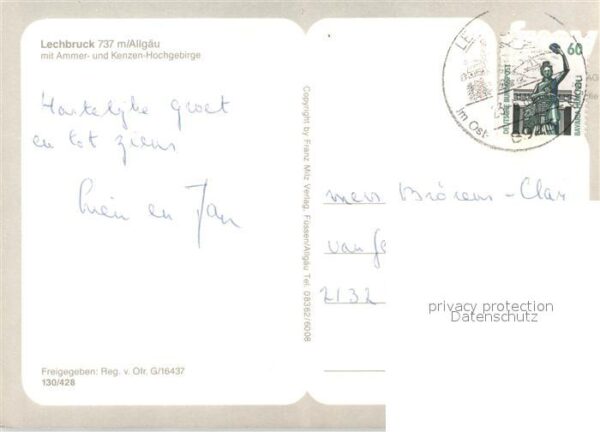 Lechbruck 737 m/Allgäu
mit Ammer- und Kenzen-Hochgebirge
Hartelijke groet
en tot ziens
en Jan
Freigegeben: Reg. v. Ofr. G/16437
130/428
Copyright by Franz Milz Verlag, Füssen/Allgäu Tel. 08362/6008
LE
im Ost-
60
DEUTSCHE BUNDESPOST
mevr
van
2132
privacy protection
Datenschutz